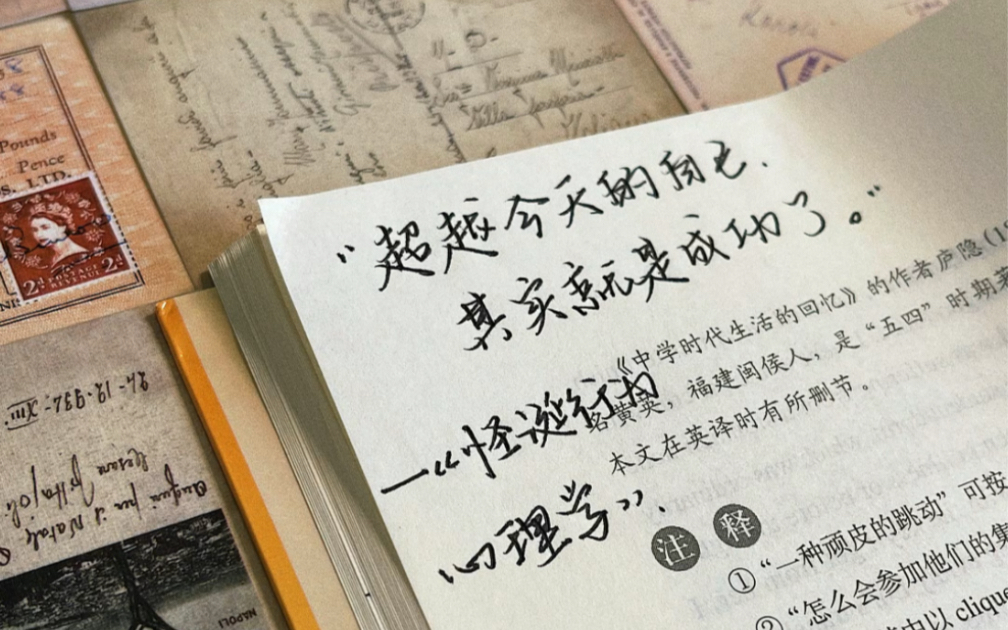 “超越今天的自己.
其实就是成功了。”
—《怪诞行为
心理学》.
《中学时代生活的回忆》的作者庐隐(18
名黄英，福建闽侯人，是“五四”时期
本文在英译时有所删节。
注释
①“一种顽皮的跳动”可按
②“怎么会参加他们的集
中以 clique
Pounds
Pence
S. LTD.
POSTAGE
REVENUE
2d
2d
24-12-932-XIII
NAPOLI